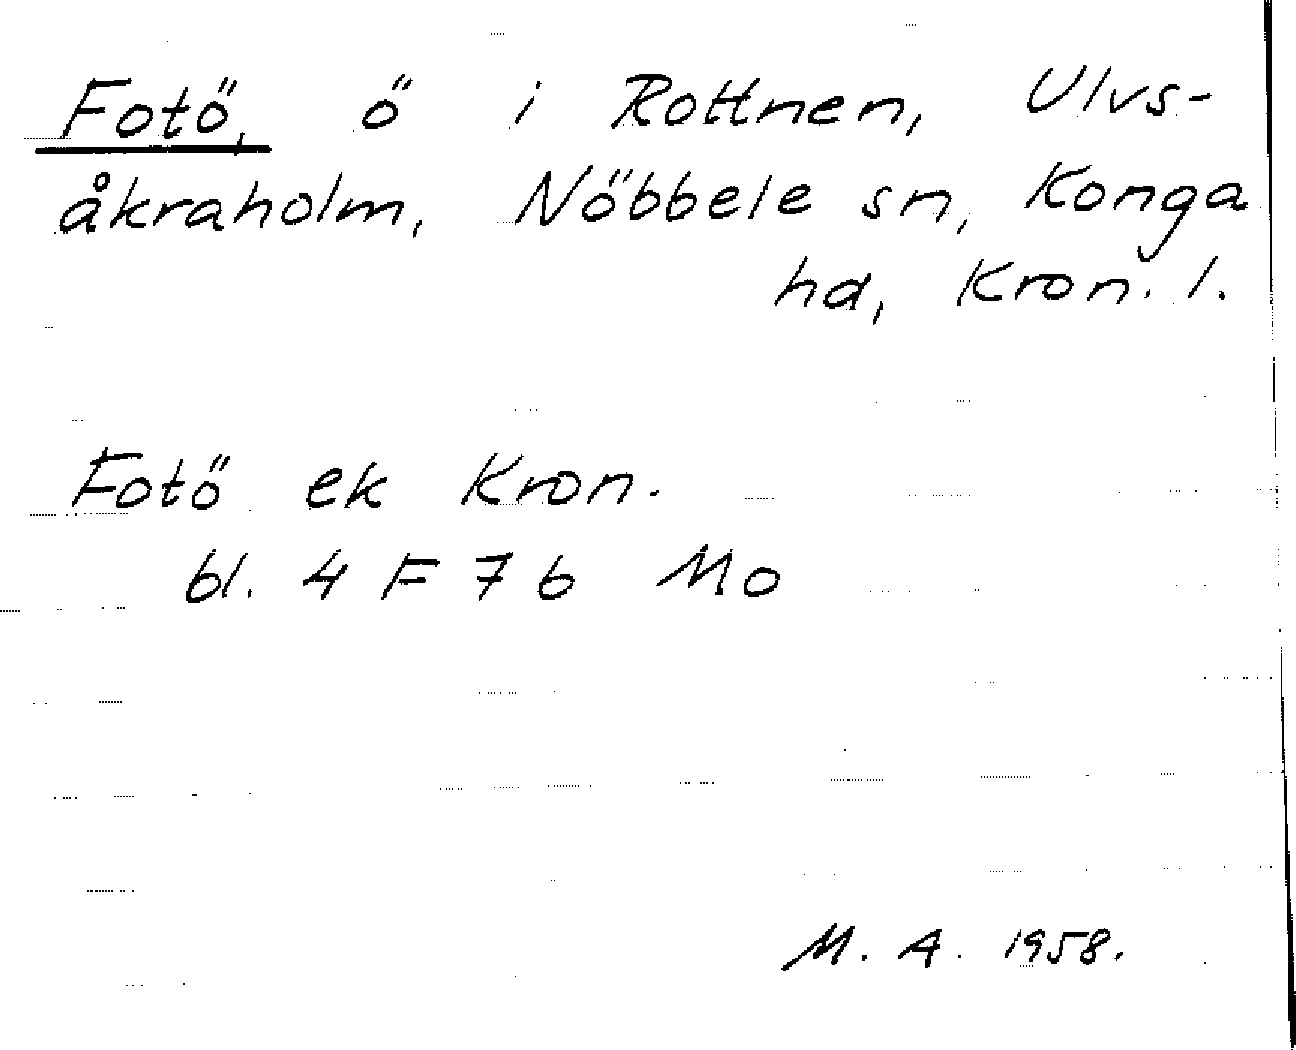 Fotö, ö i Rottnen, Ulvs-
åkraholm, Nöbbele sn, Konga
hd, Kron. l.
Fotö ek Kron.
bl. 4 F 7 b Mo
M. A. 1958.